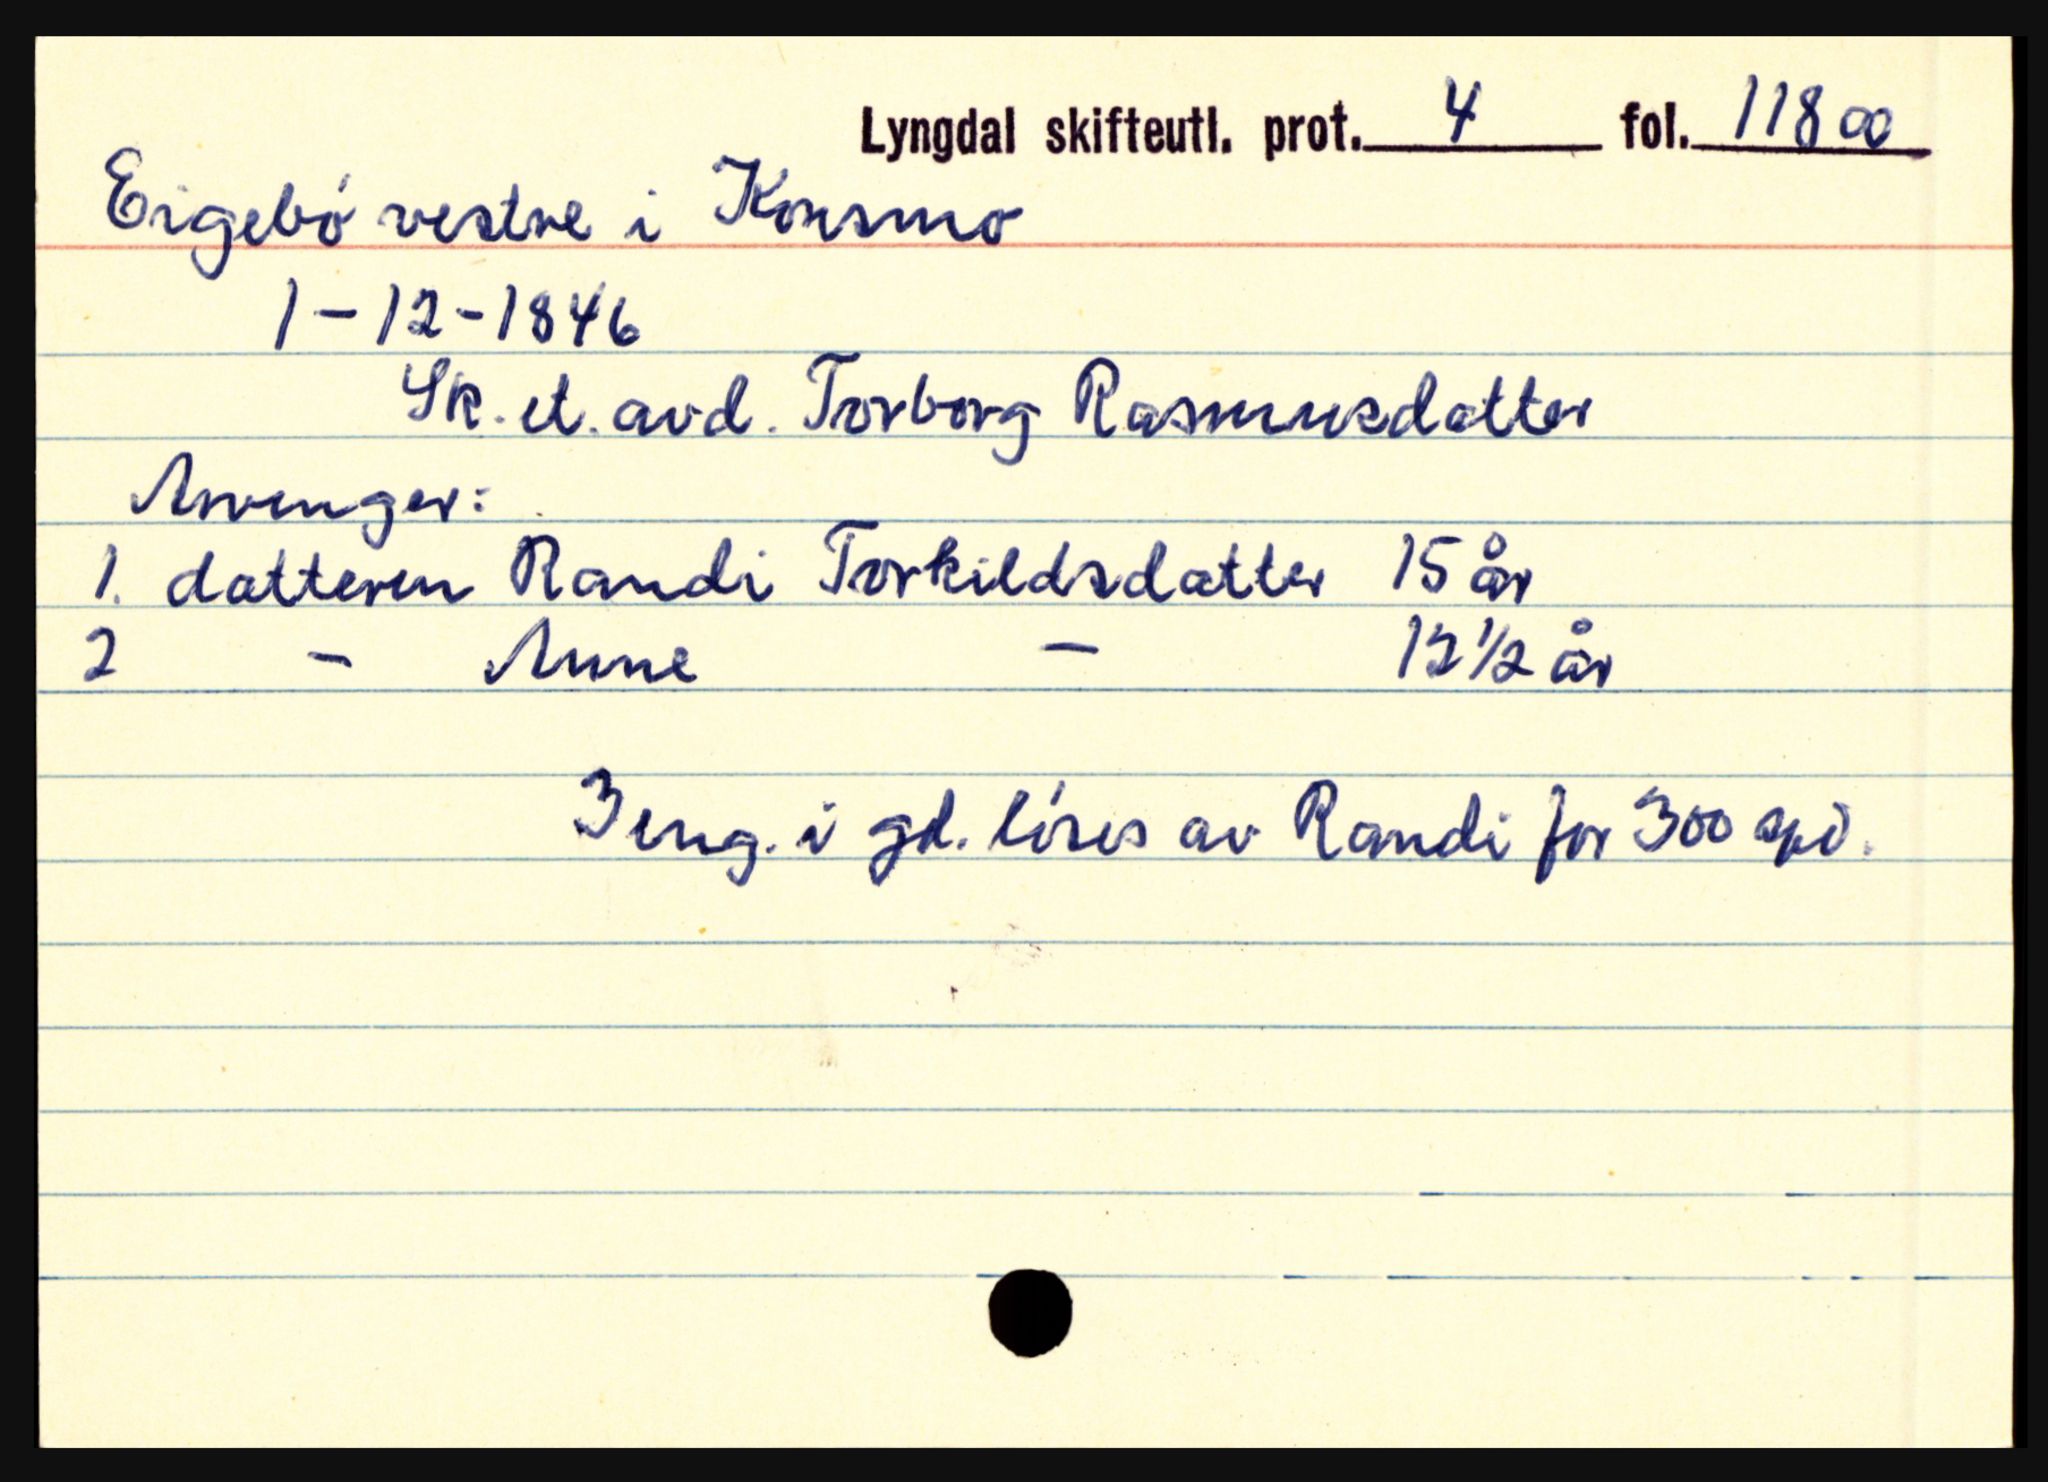 Lyngdal skifteutl. prot. 4 fol. 118
Eigebó vestre i Konsmo
1-12-1846
Sk. et. avd. Torborg Rasmusdatter
Arvinger:
1. datteren Randi Torkildsdatter 15 år
2 - Anne - 12 1/2 år
3 eng. i gd. lóses av Randi for 300 spd.